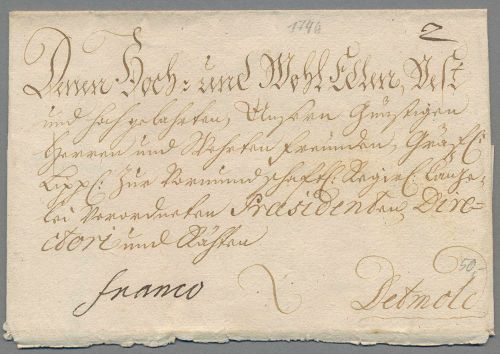 1746
2
Denen Hoch= und WohlEdlen, Vest
und hochgelahrten, Unsern Günstigen
Herren und Wehrten Freunden, Gräfl:
Lipp: Zur Vormundschafftl: Regier: Cantze-
lei Verordneten Praesidenten, Dire-
ctori und Räthen
franco
Detmold
50,-